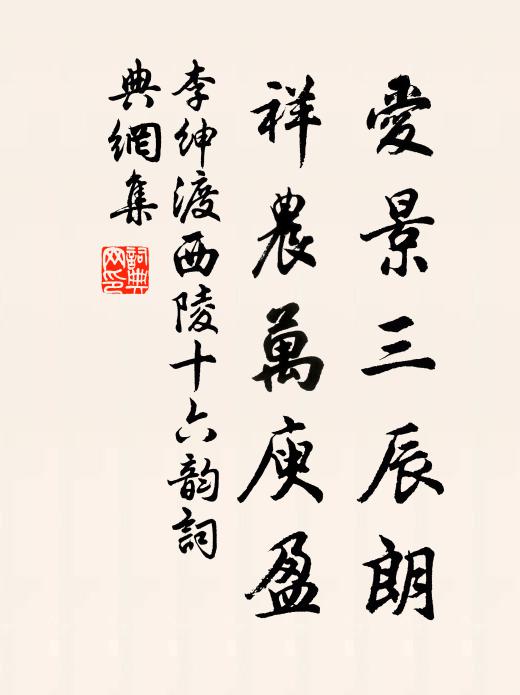 愛景三辰朗
祥農萬庾盈
李紳渡西陵十六韵詞
典網集
詞典
网印